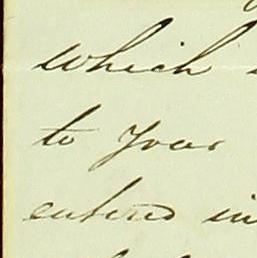 which
to your
entered in